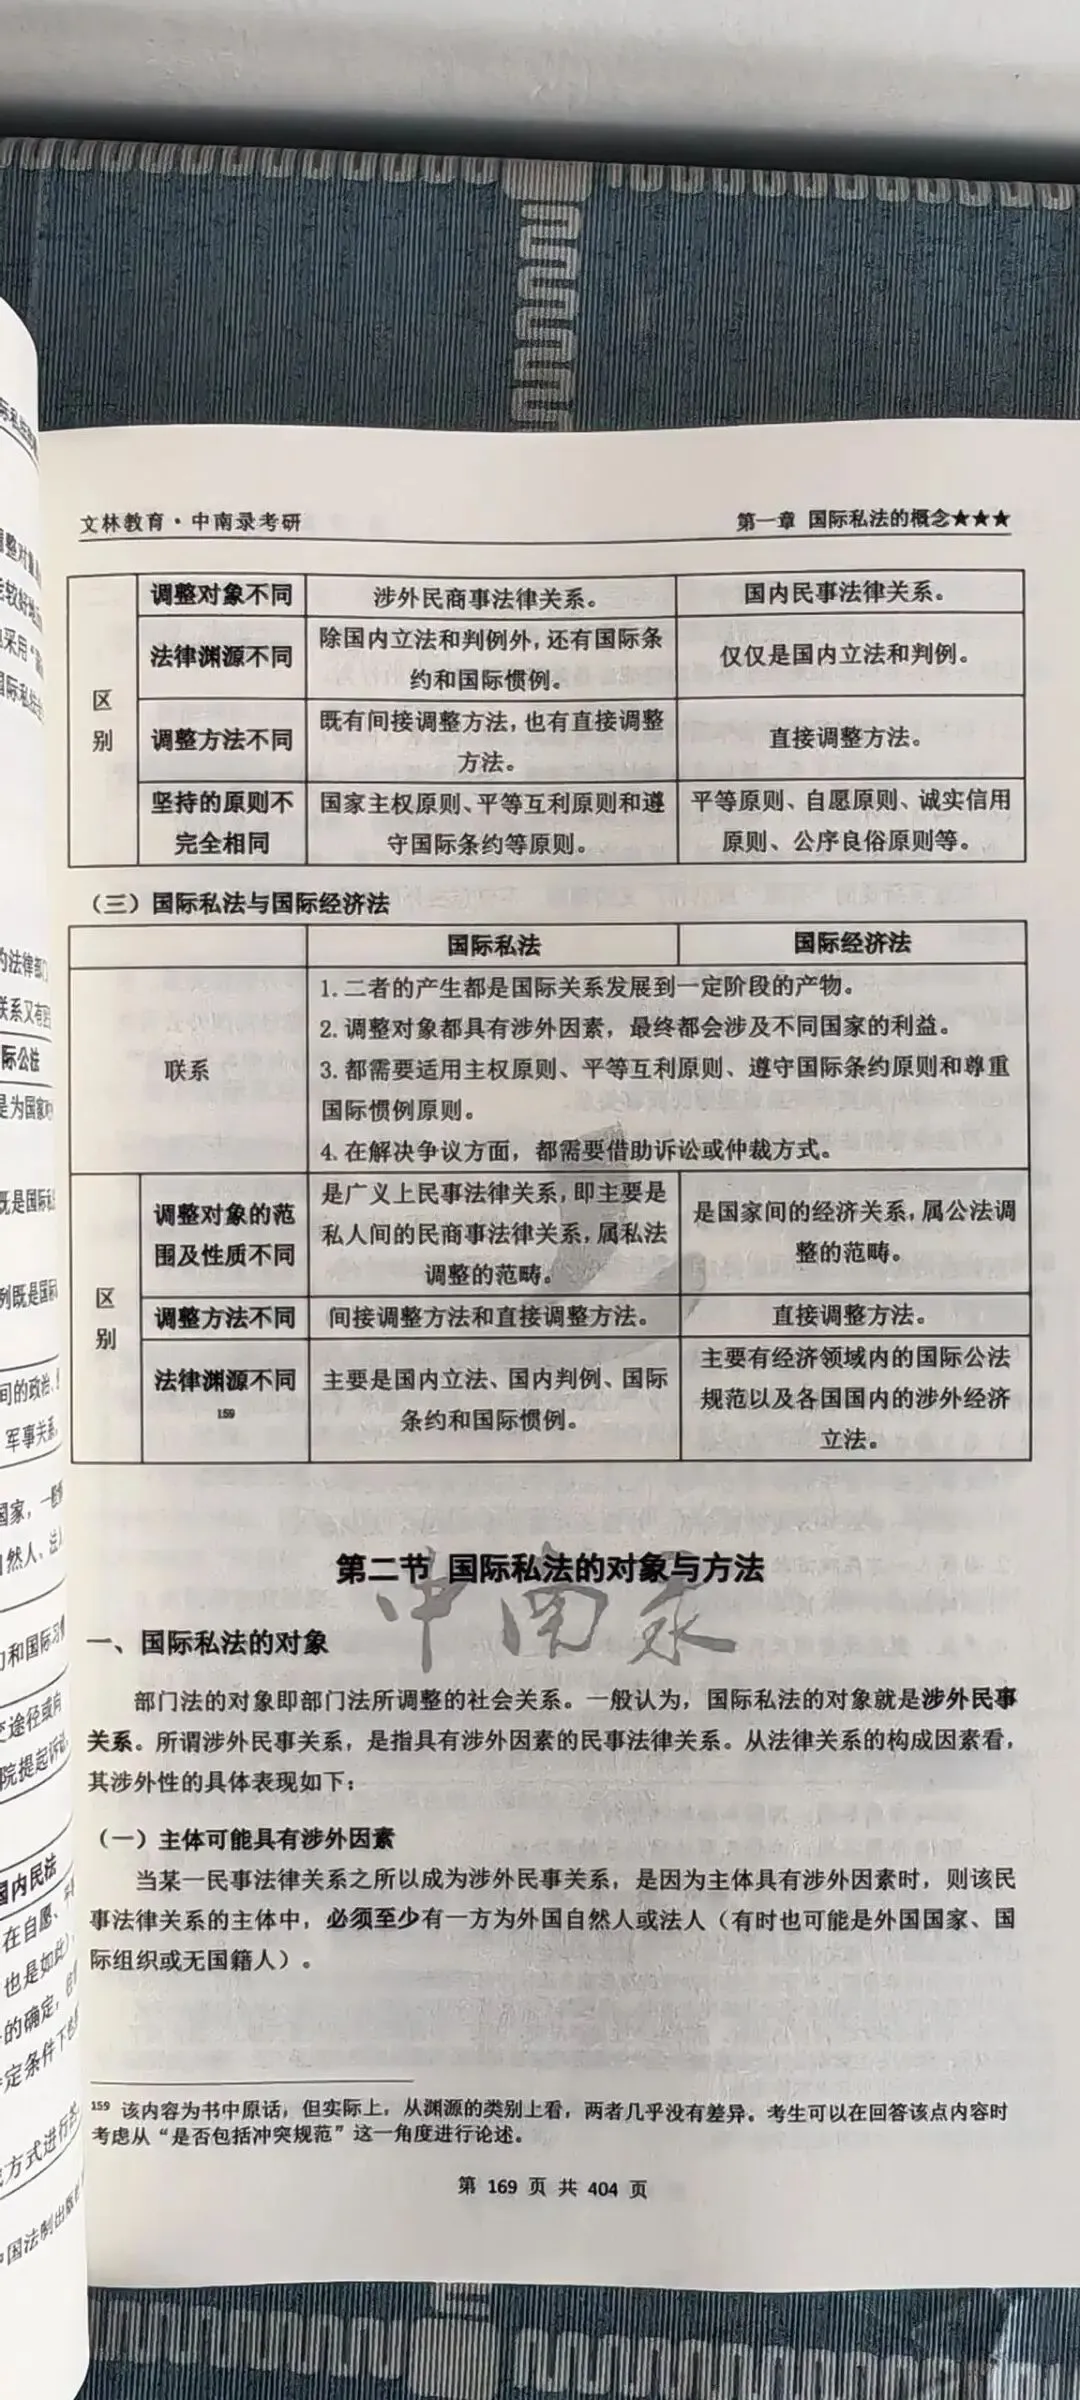 文林教育·中南录考研
第一章 国际私法的概念★★★
区别
调整对象不同
涉外民商事法律关系。
国内民事法律关系。
法律渊源不同
除国内立法和判例外，还有国际条
约和国际惯例。
仅仅是国内立法和判例。
调整方法不同
既有间接调整方法，也有直接调整
方法。
直接调整方法。
坚持的原则不
完全相同
国家主权原则、平等互利原则和遵
守国际条约等原则。
平等原则、自愿原则、诚实信用
原则、公序良俗原则等。
（三）国际私法与国际经济法
国际私法
国际经济法
联系
1.二者的产生都是国际关系发展到一定阶段的产物。
2.调整对象都具有涉外因素，最终都会涉及不同国家的利益。
3.都需要适用主权原则、平等互利原则、遵守国际条约原则和尊重
国际惯例原则。
4.在解决争议方面，都需要借助诉讼或仲裁方式。
区别
调整对象的范
围及性质不同
是广义上民事法律关系，即主要是
私人间的民商事法律关系，属私法
调整的范畴。
是国家间的经济关系，属公法调
整的范畴。
调整方法不同
间接调整方法和直接调整方法。
直接调整方法。
法律渊源不同
159
主要是国内立法、国内判例、国际
条约和国际惯例。
主要有经济领域内的国际公法
规范以及各国国内的涉外经济
立法。
第二节 国际私法的对象与方法
中南录
一、国际私法的对象
部门法的对象即部门法所调整的社会关系。一般认为，国际私法的对象就是涉外民事
关系。所谓涉外民事关系，是指具有涉外因素的民事法律关系。从法律关系的构成因素看，
其涉外性的具体表现如下：
（一）主体可能具有涉外因素
当某一民事法律关系之所以成为涉外民事关系，是因为主体具有涉外因素时，则该民
事法律关系的主体中，必须至少有一方为外国自然人或法人（有时也可能是外国国家、国
际组织或无国籍人）。
159 该内容为书中原话，但实际上，从渊源的类别上看，两者几乎没有差异。考生可以在回答该点内容时
考虑从“是否包括冲突规范”这一角度进行论述。
第 169 页 共 404 页